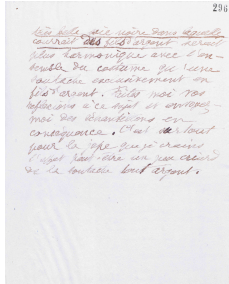 296
courrait des fils d'argent serait
plus harmonique avec l'en-
semble du costume qu'une
soutache exclusivement en
fils d'argent. Faites moi vos
réflexions à ce sujet et envoyez-
moi des échantillons en
conséquence. C'est surtout
pour la jupe que je crains
l'effet peut-être un peu criard
de la soutache tout argent.